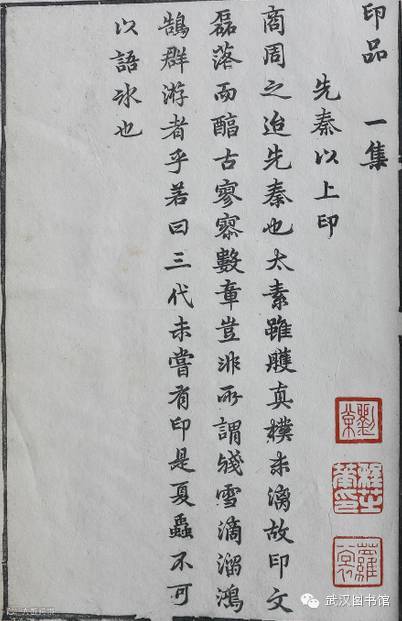 印品 一集
先秦以上印
商周之迨先秦也太素雖真樸未漓故印文
磊落而古寥寥數章豈非所謂殘雪滴溜鴻
鵠群游者乎若曰三代未嘗有印是夏蟲不可
以語冰也
武汉图书馆